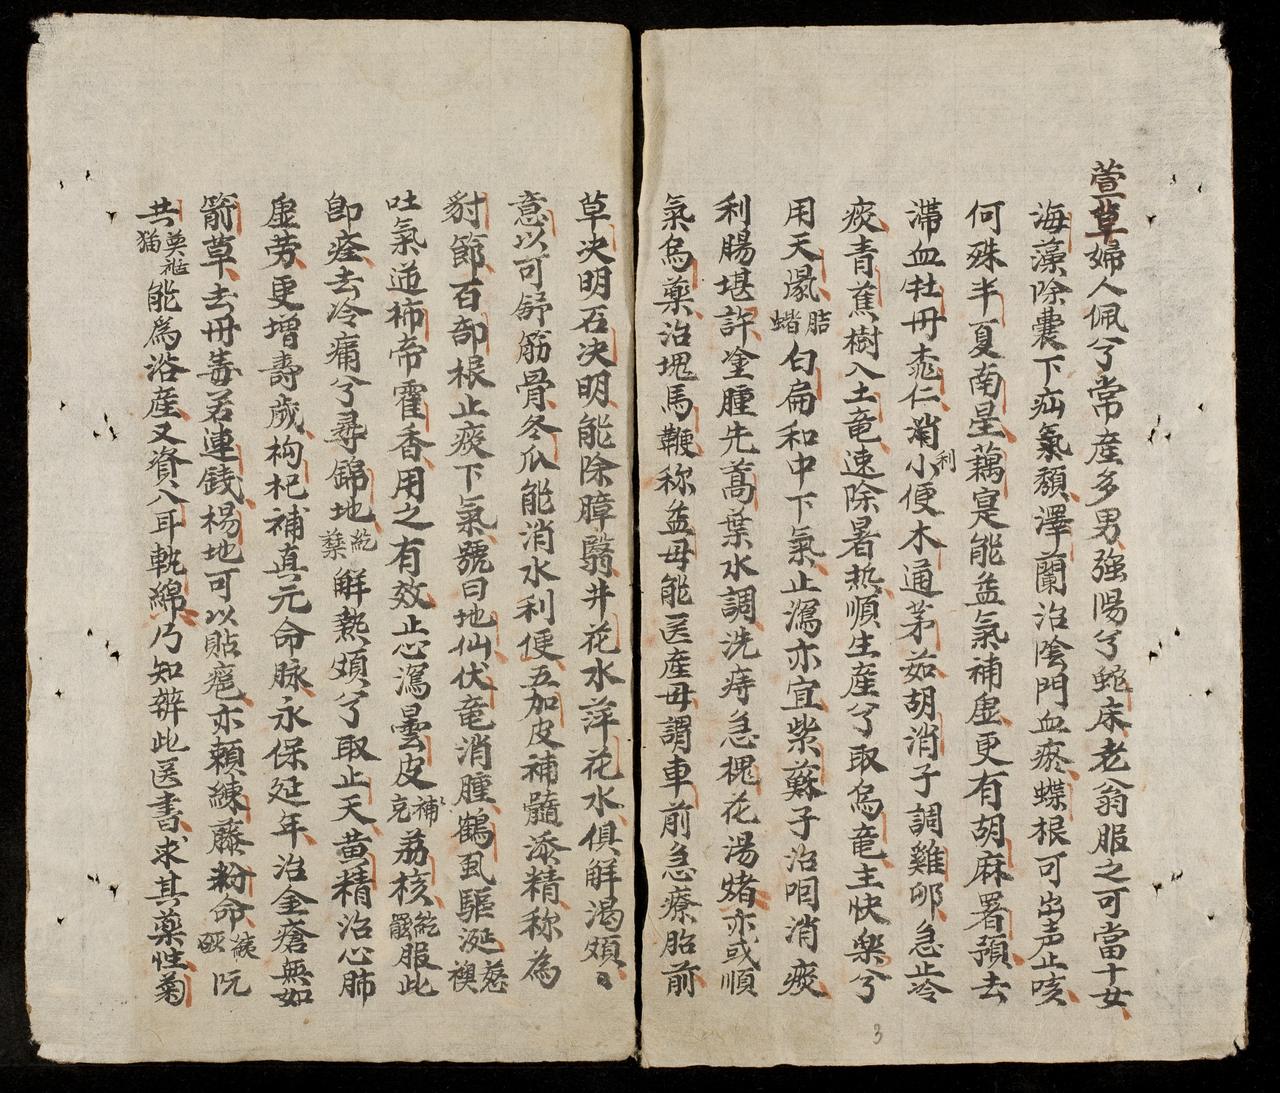 萱草婦人佩兮常産多男強陽兮蛇床老翁服之可當十女
海藻除囊下疝氣頽澤蘭治陰門血瘀蝶根可出声止咳
何殊半夏南星藕寔能益氣補虚更有胡麻署預去
滞血牡丹桃仁消小利便木通茅茹胡消子調雞卵急止冷
痰青蕉樹入土竜速除暑热順生産兮取烏竜主快楽兮
用天㬿蛣蝫白扁和中下氣止瀉亦宜紫蘇子治咱消痰
利腸堪許塗腫先蒿葉水調洗痔急槐花湯㷮亦或順
氣烏藥治塊馬鞭称益母能医産母謂車前急療胎前
草决明石决明能除障翳井花水萍花水俱解渴煩
意以可舒筋骨冬瓜能消水利便五加皮補髓添精称為
豺節百部根止痰下氣號曰地仙伏竜消腫鶴虱驅涎
吐氣道柿帝霍香用之有效止心瀉曇皮補克荔核服此
即痊去冷痛兮尋錦地解熱煩兮取止天黄精治心肺
虚劳更增壽歲枸杞補真元命脉永保延年治金瘡無如
箭草去丹毒若連錢楊地可以貼瘡亦頼練藤粉命阮
共能為浴産又資入耳軌綿乃知辨此医書求其藥性菊
3